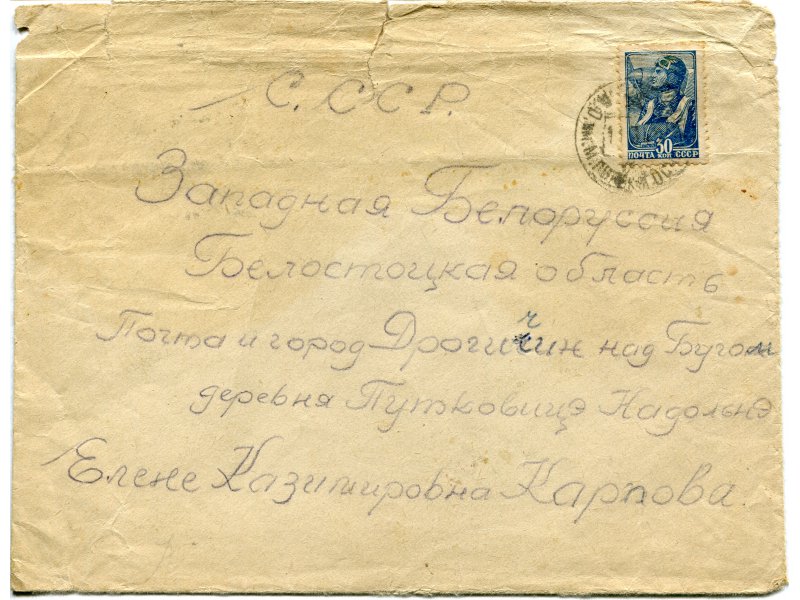 С. ССР.
30
ПОЧТА КОП СССР
Западная Белоруссия
Белостоцкая область
Почта и город Дрогичин над Бугом
деревня Путковицэ Надольнэ
Елене Казимировна Карпова.